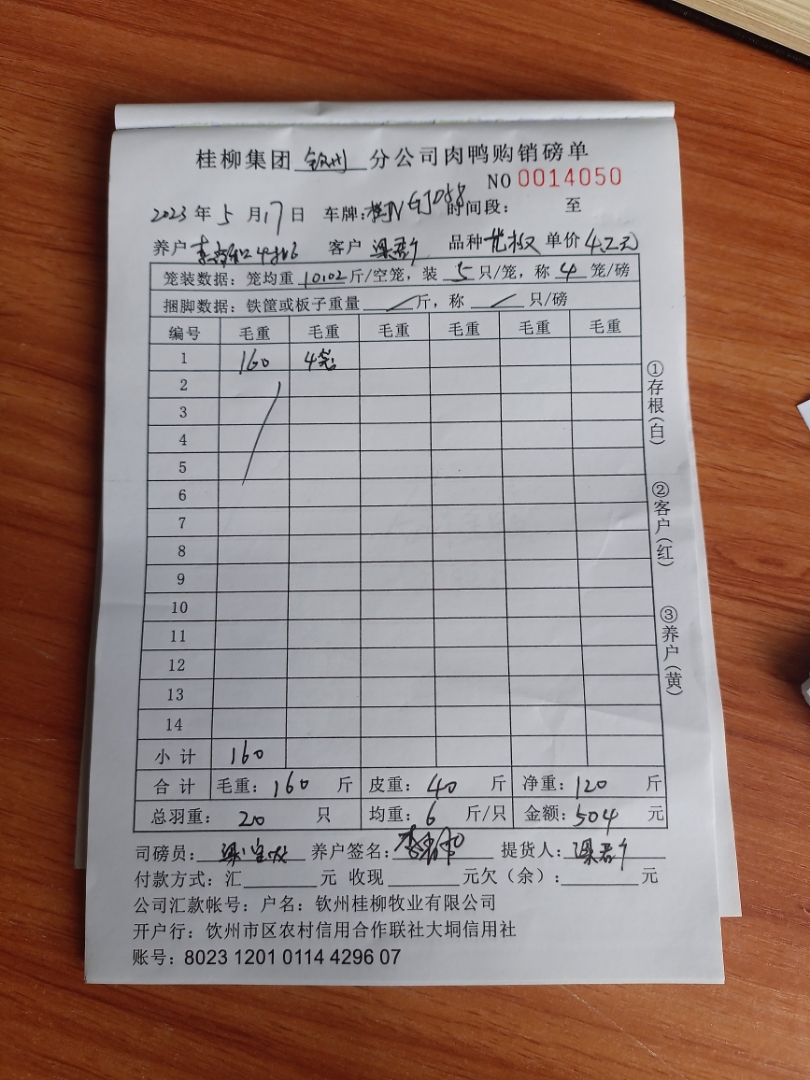 桂柳集团 钦州 分公司肉鸭购销磅单
NO 0014050
2023年5月17日 车牌:桂N GJ088 时间段: 至
养户 客户 梁 品种 单价 4.2元
笼装数据:笼均重 斤/空笼,装 5 只/笼,称 4 笼/磅
捆脚数据:铁筐或板子重量 斤,称 只/磅
编号 毛重 毛重 毛重 毛重 毛重 毛重
1 160 4笼
2
3
4
5
6
7
8
9
10
11
12
13
14
小计 160
合计 毛重:160 斤 皮重:40 斤 净重:120 斤
总羽重: 20 只 均重: 6 斤/只 金额:504 元
司磅员: 养户签名: 提货人:梁
付款方式:汇 元 收现 元欠(余): 元
公司汇款帐号:户名:钦州桂柳牧业有限公司
开户行:钦州市区农村信用合作联社大垌信用社
账号:8023 1201 0114 4296 07
①存根(白)
②客户(红)
③养户(黄)